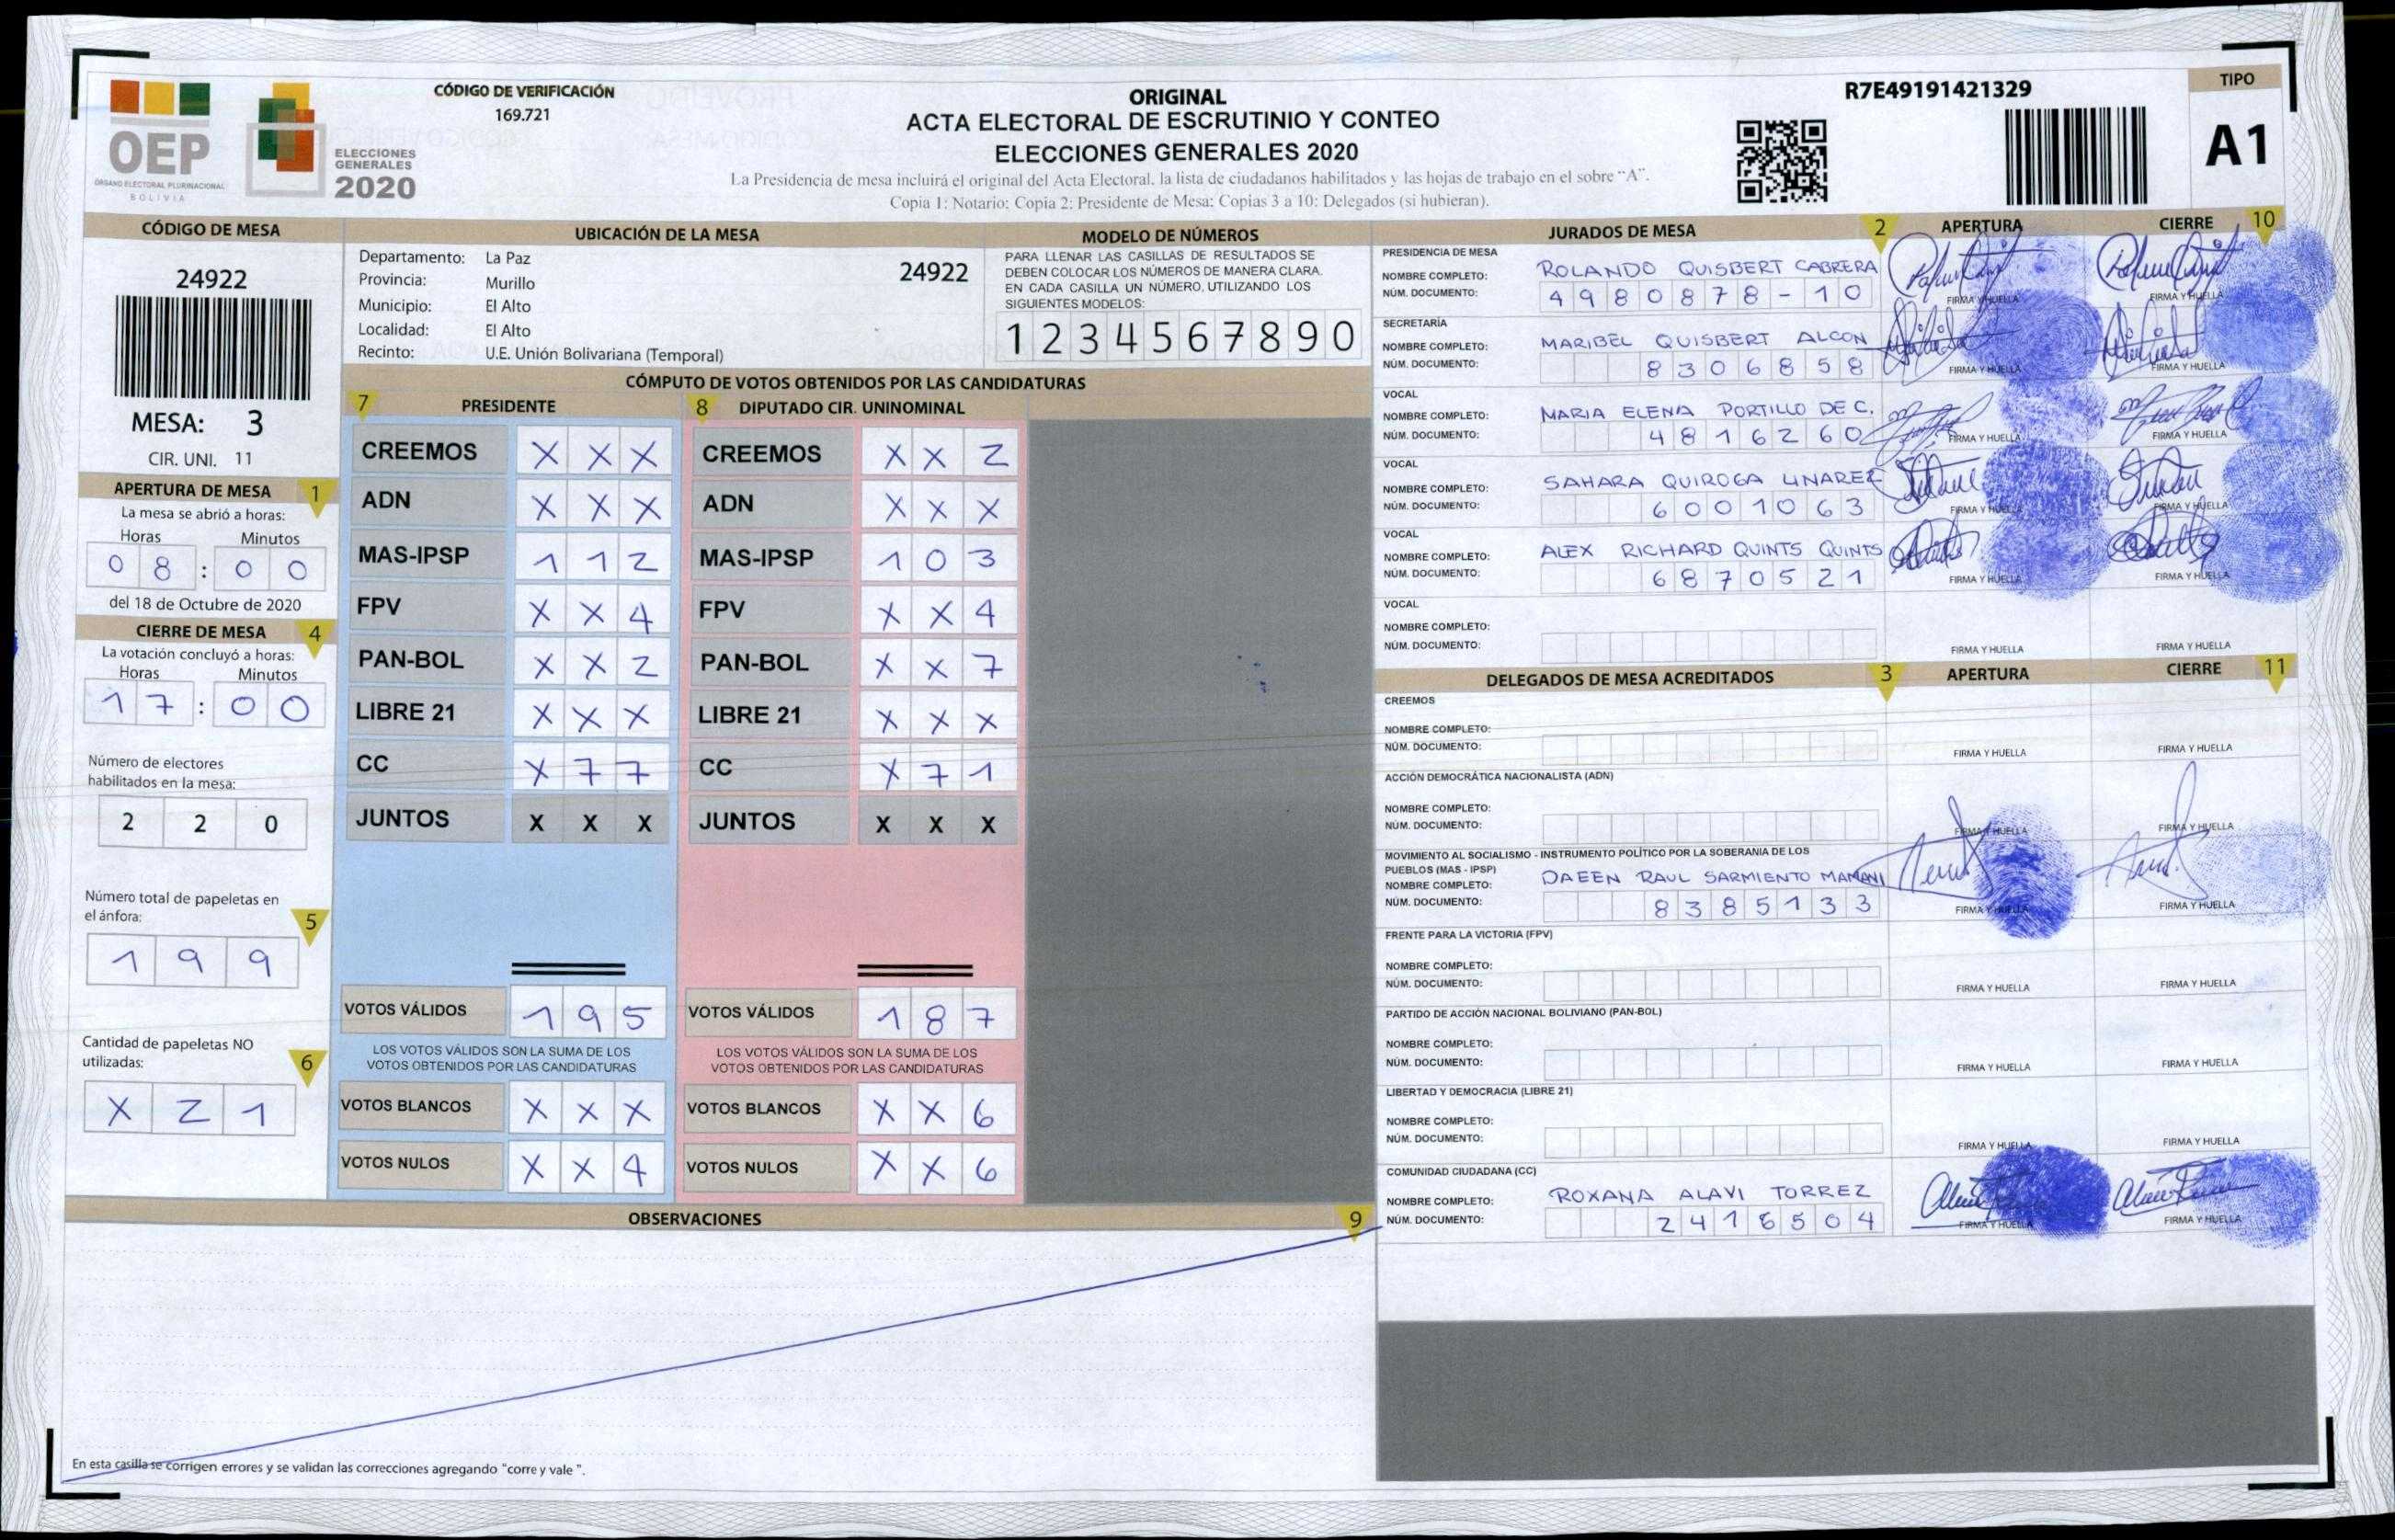 OEP
ÓRGANO ELECTORAL PLURINACIONAL
BOLIVIA
ELECCIONES
GENERALES
2020
CÓDIGO DE VERIFICACIÓN
169.721
ORIGINAL
ACTA ELECTORAL DE ESCRUTINIO Y CONTEO
ELECCIONES GENERALES 2020
La Presidencia de mesa incluirá el original del Acta Electoral, la lista de ciudadanos habilitados y las hojas de trabajo en el sobre "A".
Copia 1: Notario; Copia 2: Presidente de Mesa; Copias 3 a 10: Delegados (si hubieran).
R7E49191421329
TIPO
A1
CÓDIGO DE MESA
24922
MESA: 3
CIR. UNI. 11
APERTURA DE MESA 1
La mesa se abrió a horas:
Horas Minutos
0 8 : 0 0
del 18 de Octubre de 2020
CIERRE DE MESA 4
La votación concluyó a horas:
Horas Minutos
1 7 : 0 0
Número de electores
habilitados en la mesa:
2 2 0
Número total de papeletas en
el ánfora: 5
1 9 9
Cantidad de papeletas NO
utilizadas: 6
X 2 1
UBICACIÓN DE LA MESA
Departamento: La Paz 24922
Provincia: Murillo
Municipio: El Alto
Localidad: El Alto
Recinto: U.E. Unión Bolivariana (Temporal)
MODELO DE NÚMEROS
PARA LLENAR LAS CASILLAS DE RESULTADOS SE
DEBEN COLOCAR LOS NÚMEROS DE MANERA CLARA.
EN CADA CASILLA UN NÚMERO, UTILIZANDO LOS
SIGUIENTES MODELOS:
1 2 3 4 5 6 7 8 9 0
CÓMPUTO DE VOTOS OBTENIDOS POR LAS CANDIDATURAS
7 PRESIDENTE 8 DIPUTADO CIR. UNINOMINAL
CREEMOS X X X CREEMOS X X 2
ADN X X X ADN X X X
MAS-IPSP 1 1 2 MAS-IPSP 1 0 3
FPV X X 4 FPV X X 4
PAN-BOL X X 2 PAN-BOL X X 7
LIBRE 21 X X X LIBRE 21 X X X
CC X 7 7 CC X 7 1
JUNTOS X X X JUNTOS X X X
VOTOS VÁLIDOS 1 9 5 VOTOS VÁLIDOS 1 8 7
LOS VOTOS VÁLIDOS SON LA SUMA DE LOS LOS VOTOS VÁLIDOS SON LA SUMA DE LOS
VOTOS OBTENIDOS POR LAS CANDIDATURAS VOTOS OBTENIDOS POR LAS CANDIDATURAS
VOTOS BLANCOS X X X VOTOS BLANCOS X X 6
VOTOS NULOS X X 4 VOTOS NULOS X X 6
OBSERVACIONES 9
En esta casilla se corrigen errores y se validan las correcciones agregando "corre y vale ".
JURADOS DE MESA 2 APERTURA CIERRE 10
PRESIDENCIA DE MESA
NOMBRE COMPLETO: ROLANDO QUISBERT CABRERA
NÚM. DOCUMENTO: 4 9 8 0 8 7 8 - 1 0 FIRMA Y HUELLA FIRMA Y HUELLA
SECRETARÍA
NOMBRE COMPLETO: MARIBEL QUISBERT ALCON
NÚM. DOCUMENTO: 8 3 0 6 8 5 8 FIRMA Y HUELLA FIRMA Y HUELLA
VOCAL
NOMBRE COMPLETO: MARIA ELENA PORTILLO DE C.
NÚM. DOCUMENTO: 4 8 1 6 2 6 0 FIRMA Y HUELLA FIRMA Y HUELLA
VOCAL
NOMBRE COMPLETO: SAHARA QUIROGA LINAREZ
NÚM. DOCUMENTO: 6 0 0 1 0 6 3 FIRMA Y HUELLA FIRMA Y HUELLA
VOCAL
NOMBRE COMPLETO: ALEX RICHARD QUINTS QUINTS
NÚM. DOCUMENTO: 6 8 7 0 5 2 1 FIRMA Y HUELLA FIRMA Y HUELLA
VOCAL
NOMBRE COMPLETO:
NÚM. DOCUMENTO: FIRMA Y HUELLA FIRMA Y HUELLA
DELEGADOS DE MESA ACREDITADOS 3 APERTURA CIERRE 11
CREEMOS
NOMBRE COMPLETO:
NÚM. DOCUMENTO: FIRMA Y HUELLA FIRMA Y HUELLA
ACCIÓN DEMOCRÁTICA NACIONALISTA (ADN)
NOMBRE COMPLETO:
NÚM. DOCUMENTO: FIRMA Y HUELLA FIRMA Y HUELLA
MOVIMIENTO AL SOCIALISMO - INSTRUMENTO POLÍTICO POR LA SOBERANIA DE LOS
PUEBLOS (MAS - IPSP)
NOMBRE COMPLETO: DAEEN RAUL SARMIENTO MAMANI
NÚM. DOCUMENTO: 8 3 8 5 1 3 3 FIRMA Y HUELLA FIRMA Y HUELLA
FRENTE PARA LA VICTORIA (FPV)
NOMBRE COMPLETO:
NÚM. DOCUMENTO: FIRMA Y HUELLA FIRMA Y HUELLA
PARTIDO DE ACCIÓN NACIONAL BOLIVIANO (PAN-BOL)
NOMBRE COMPLETO:
NÚM. DOCUMENTO: FIRMA Y HUELLA FIRMA Y HUELLA
LIBERTAD Y DEMOCRACIA (LIBRE 21)
NOMBRE COMPLETO:
NÚM. DOCUMENTO: FIRMA Y HUELLA FIRMA Y HUELLA
COMUNIDAD CIUDADANA (CC)
NOMBRE COMPLETO: ROXANA ALAVI TORREZ
NÚM. DOCUMENTO: 2 4 1 6 5 0 4 FIRMA Y HUELLA FIRMA Y HUELLA